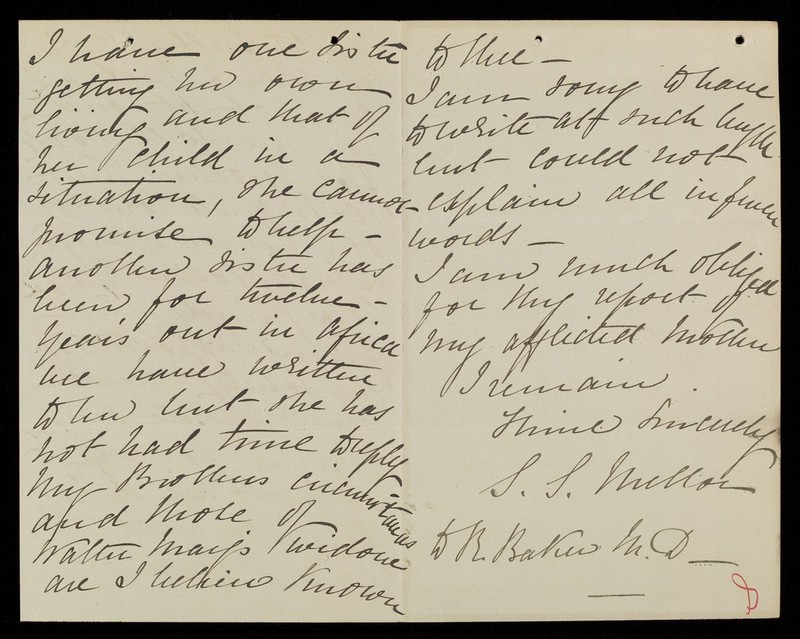 I have one sister
getting her own
living and that of
her child in a
situation, she cannot
promise to help -
another sister has
been for twelve -
years out in Africa
we have written
to her but she has
not had time to reply
My Brothers circumstances
and those of
Walter Mays widow
are I believe known
to thee -
I am sorry to have
to write at such length
but could not
explain all in fewer
words -
I am much obliged
for thy report of
my afflicted Mother
I remain
Thine Sincerely
S. S. Mellor
to R. Baker M.D